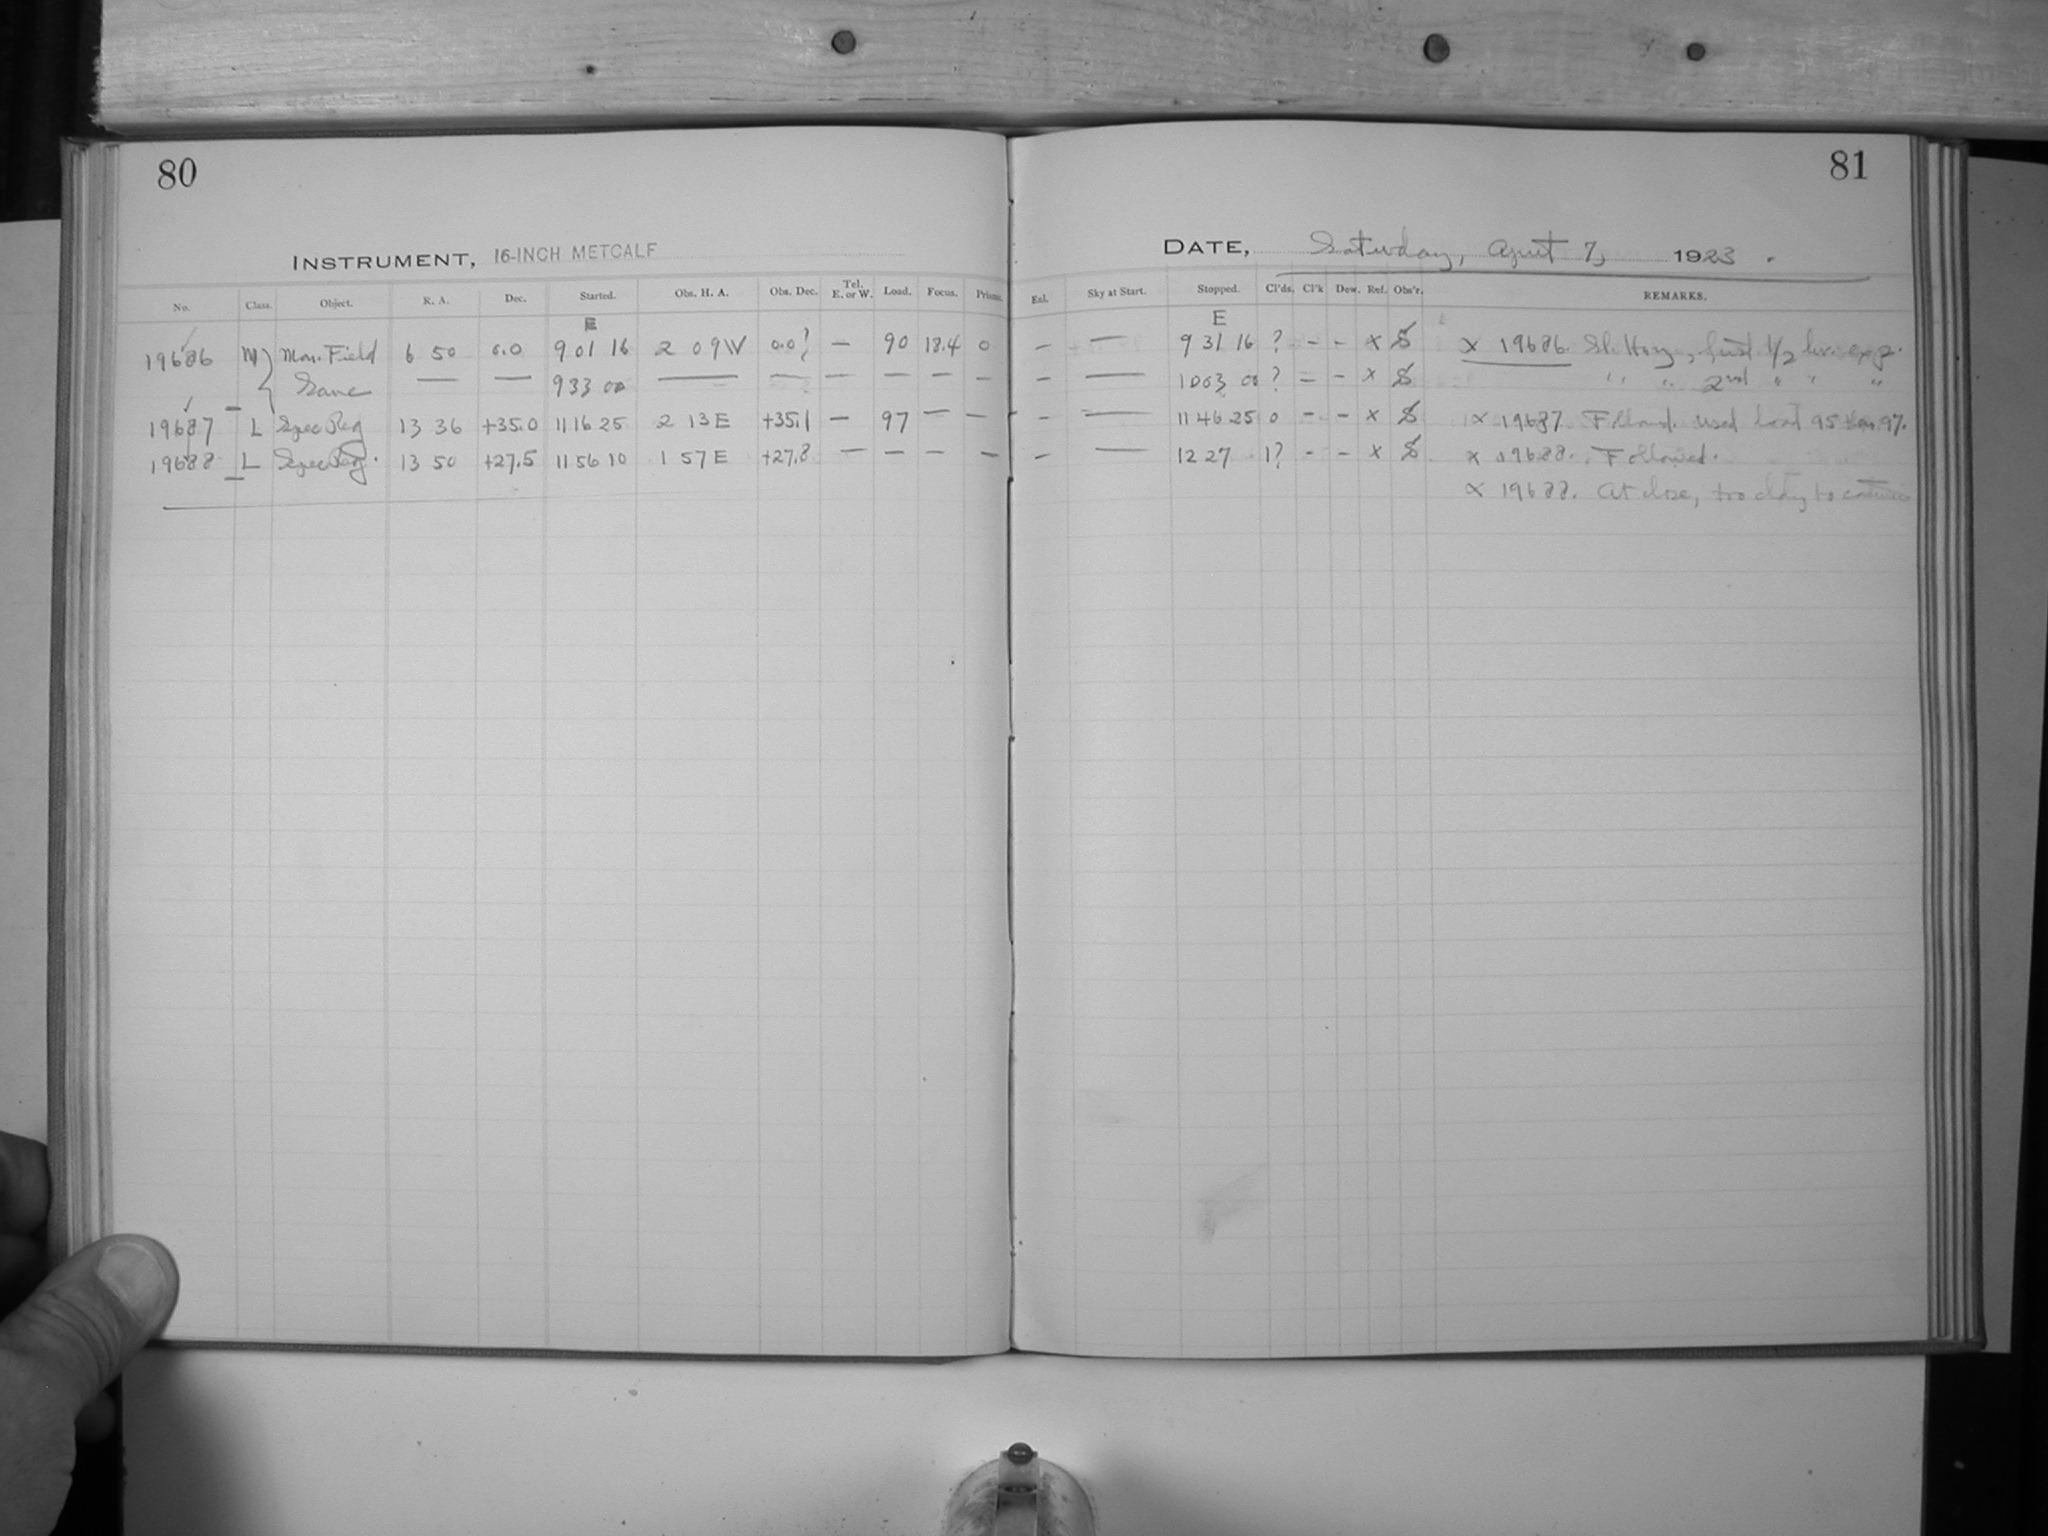 80
INSTRUMENT, 16-INCH METCALF
No. Class. Object. R. A. Dec. Started. Obs. H. A. Obs. Dec. Tel. E. or W. Load. Focus. Prisms.
E
19686 M Mon. Field 6 50 0.0 9 01 16 2 09 W 0.0? — 90 18.4 0
Same — — 9 33 00 — — — — — —
19687 L Spec Reg 13 36 +35.0 11 16 25 2 13 E +35.1 — 97 — —
19688 L Spec Reg. 13 50 +27.5 11 56 10 1 57 E +27.8 — — — —
81
DATE, Saturday, April 7, 1923.
Exl. Sky at Start. Stopped. Cl'ds. Cl'k Dew. Ref. Obs'r. REMARKS.
E
— — 9 31 16 ? - - x S x 19686. Sl. Hazy, first 1/2 hr. exp.
— — 10 03 00 ? - - x S " " 2nd " " "
— — 11 46 25 0 - - x S x 19687. Followed. used load 95 97.
— — 12 27 1? - - x S x 19688. Followed.
x 19688. At close, too cldy to continue